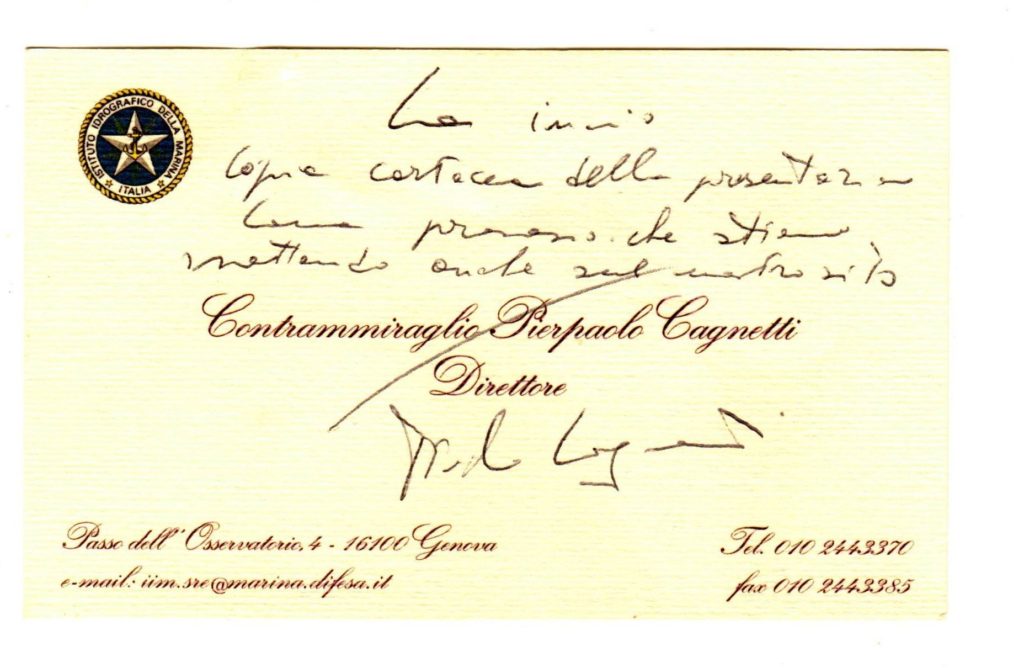 ISTITUTO IDROGRAFICO DELLA MARINA
ITALIA
Le invio
copia cartacea della presentazione
come promesso che stiamo
mettendo anche sul nostro sito
Contrammiraglio Pierpaolo Cagnetti
Direttore
Cagnetti
Passo dell'Osservatorio, 4 - 16100 Genova
Tel. 010 2443370
e-mail: iim.sre@marina.difesa.it
fax 010 2443385